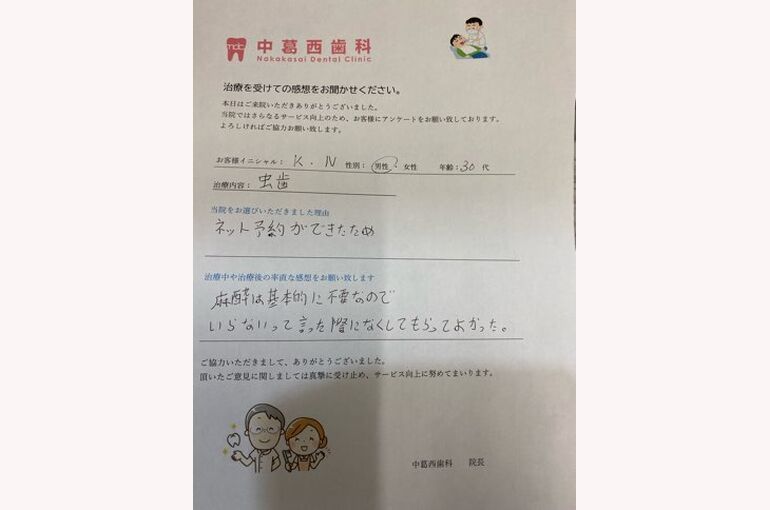 mdc 中葛西歯科
Nakakasai Dental Clinic
治療を受けての感想をお聞かせください。
本日はご来院いただきありがとうございました。
当院ではさらなるサービス向上のため、お客様にアンケートをお願い致しております。
よろしければご協力お願い致します。
お客様イニシャル： K．N 性別：男性・女性 年齢：30 代
治療内容： 虫歯
当院をお選びいただきました理由
ネット予約ができたため
治療中や治療後の率直な感想をお願い致します
麻酔は基本的に不要なので
いらないって言った際になくしてもらってよかった。
ご協力いただきまして、ありがとうございました。
頂いたご意見に関しましては真摯に受け止め、サービス向上に努めてまいります。
中葛西歯科 院長